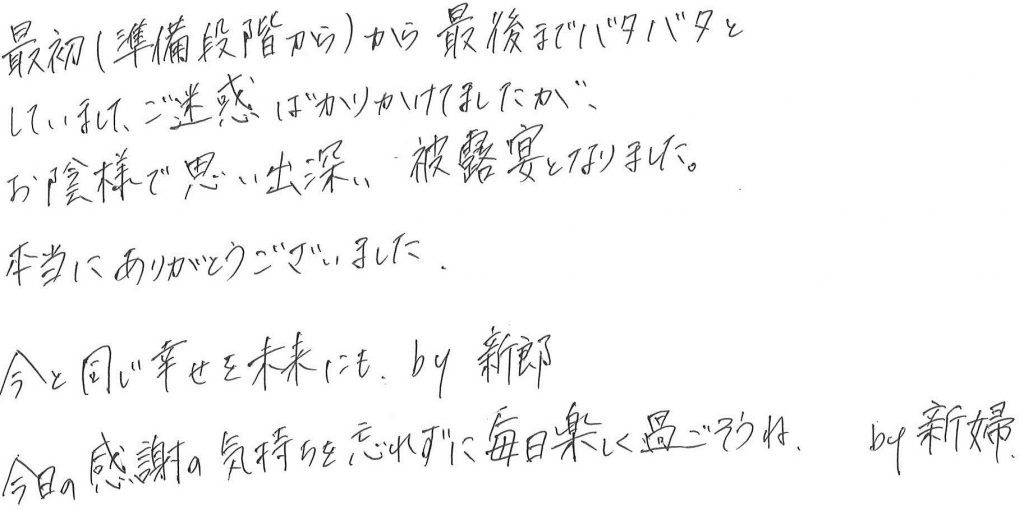 最初(準備段階から)から最後までバタバタと
していまして、ご迷惑ばかりかけてましたが、
お陰様で思い出深い被露宴となりました。
本当にありがとうございました.
今と同じ幸せを未来にも. by 新郎
今日の感謝の気持ちを忘れずに毎日楽しく過ごそうね. by 新婦.